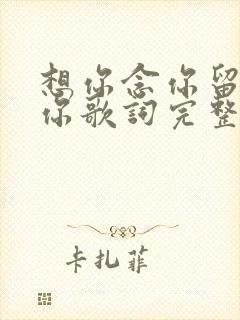 想你念你留
你歌詞完整
卡扎菲